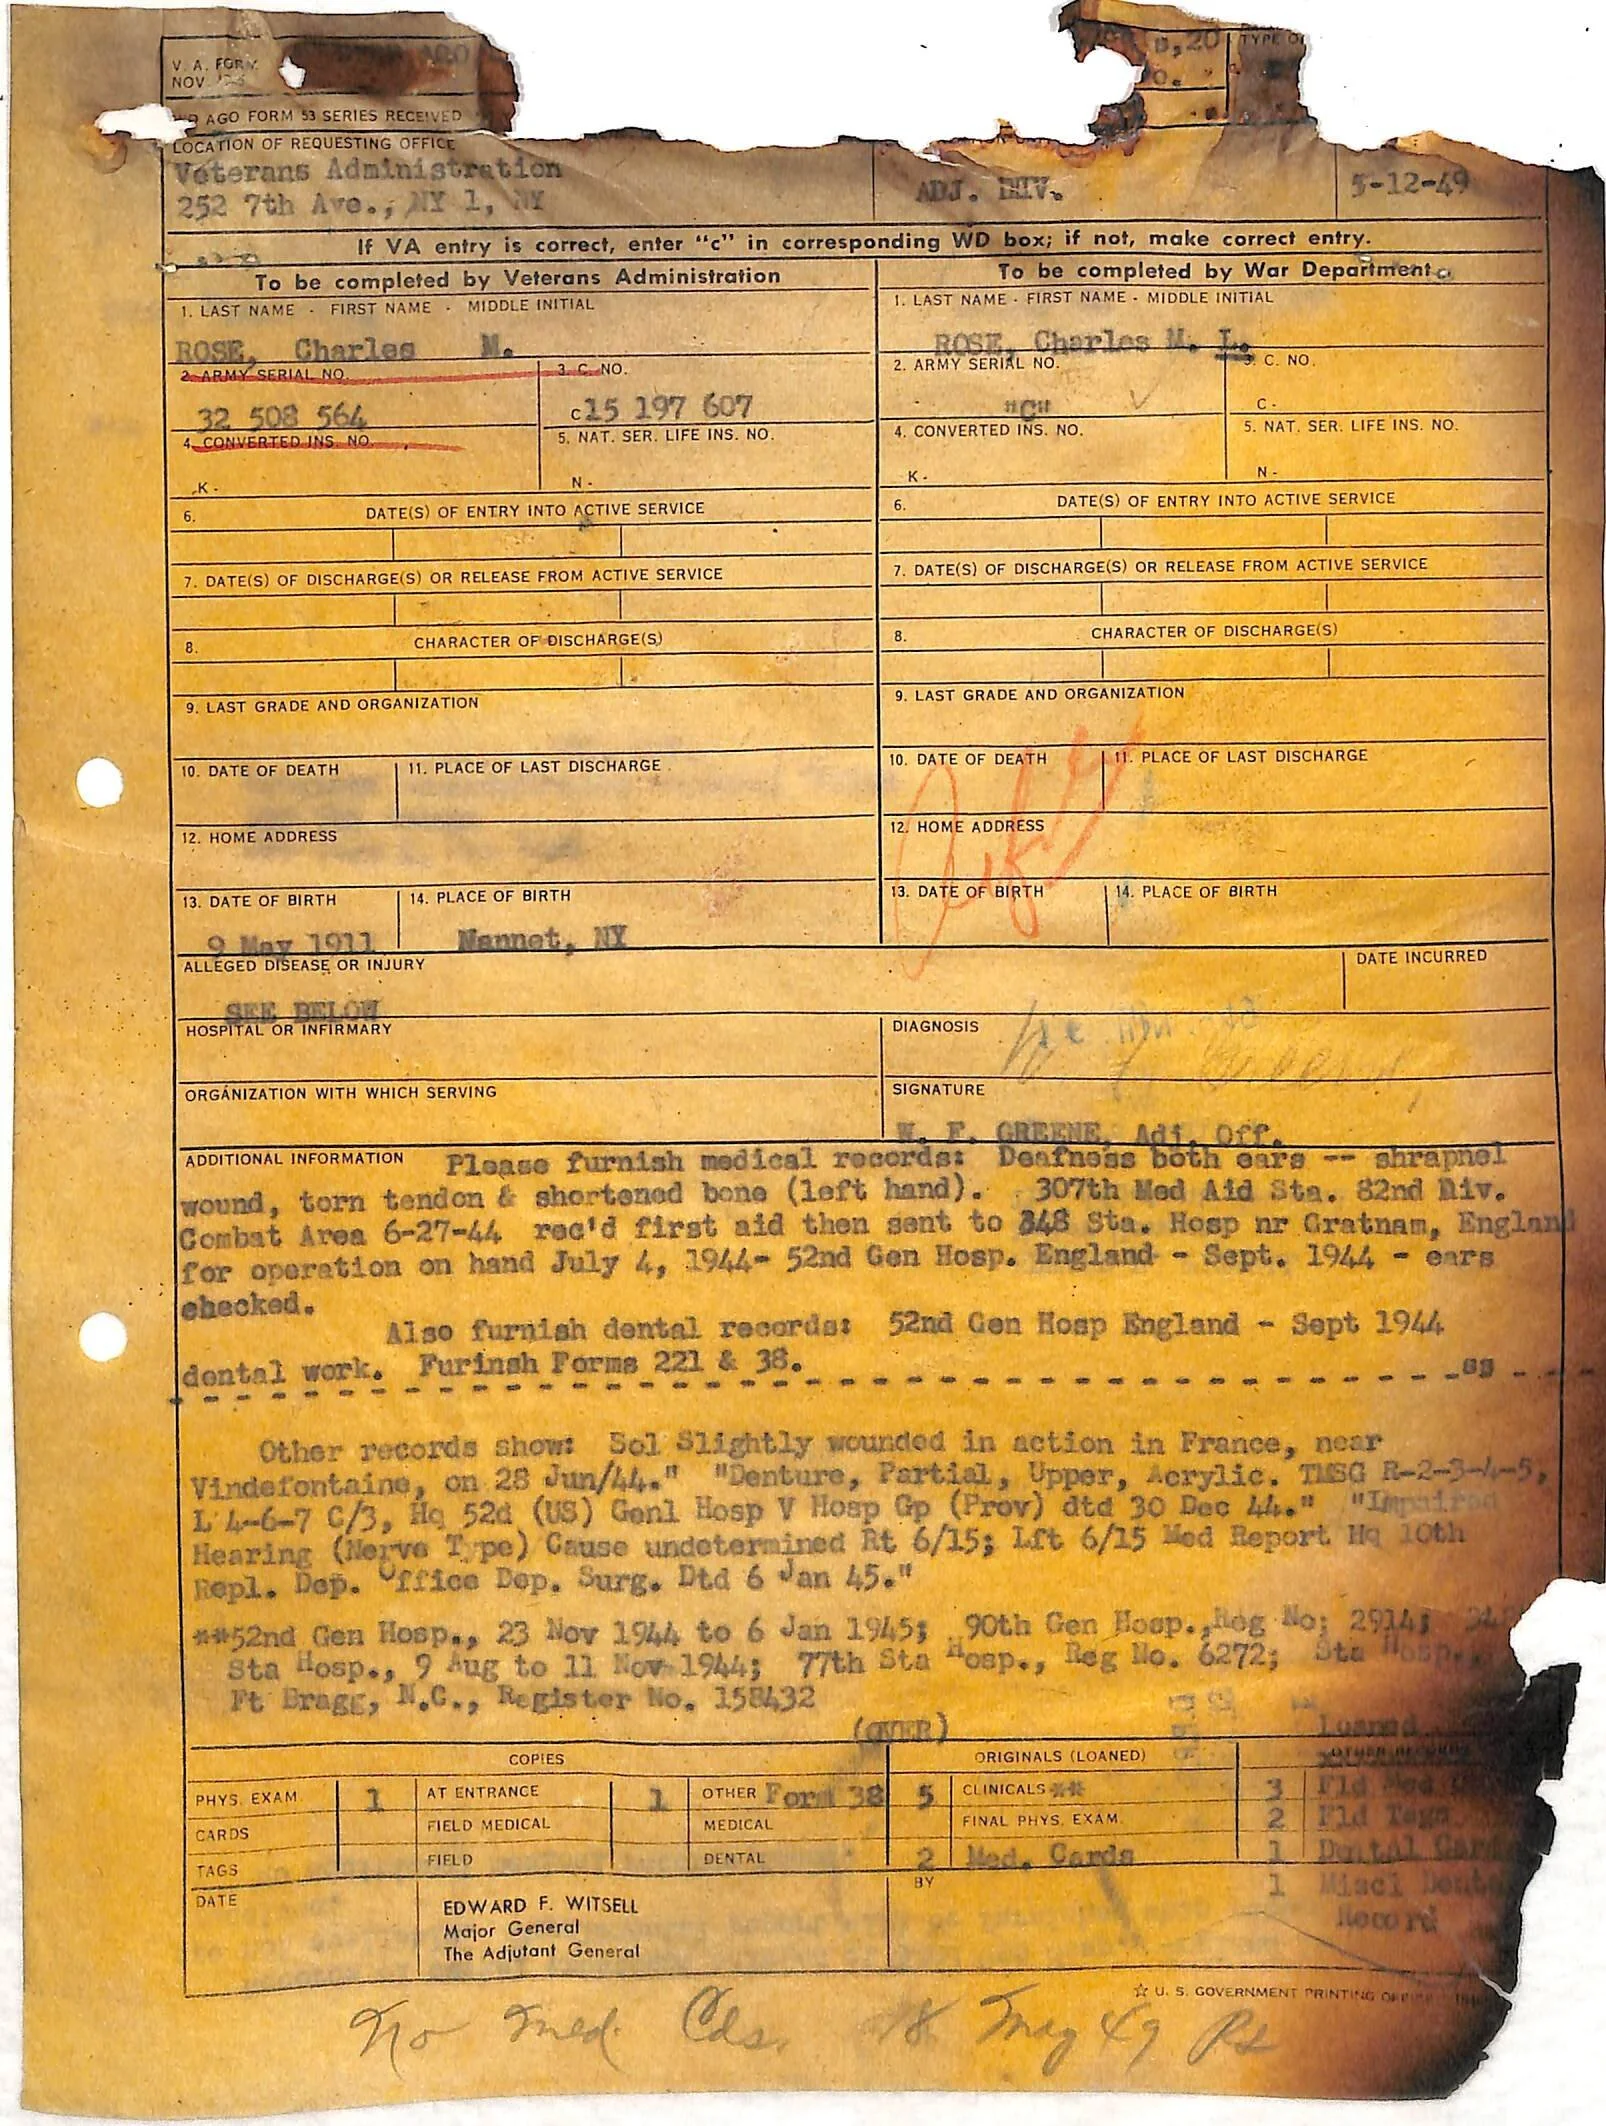 V. A. FORM
NOV
D, 20
TYPE
O.
AGO FORM 53 SERIES RECEIVED
LOCATION OF REQUESTING OFFICE
Veterans Administration
252 7th Ave., NY 1, NY
ADJ. DIV.
5-12-49
If VA entry is correct, enter "c" in corresponding WD box; if not, make correct entry.
To be completed by Veterans Administration
To be completed by War Department
1. LAST NAME - FIRST NAME - MIDDLE INITIAL
1. LAST NAME - FIRST NAME - MIDDLE INITIAL
ROSE, Charles M.
ROSE, Charles M. L.
2. ARMY SERIAL NO.
3. C. NO.
2. ARMY SERIAL NO.
3. C. NO.
32 508 564
C 15 197 607
"C"
C -
4. CONVERTED INS. NO.
5. NAT. SER. LIFE INS. NO.
4. CONVERTED INS. NO.
5. NAT. SER. LIFE INS. NO.
K -
N -
K -
N -
6. DATE(S) OF ENTRY INTO ACTIVE SERVICE
6. DATE(S) OF ENTRY INTO ACTIVE SERVICE
7. DATE(S) OF DISCHARGE(S) OR RELEASE FROM ACTIVE SERVICE
7. DATE(S) OF DISCHARGE(S) OR RELEASE FROM ACTIVE SERVICE
8. CHARACTER OF DISCHARGE(S)
8. CHARACTER OF DISCHARGE(S)
9. LAST GRADE AND ORGANIZATION
9. LAST GRADE AND ORGANIZATION
10. DATE OF DEATH
11. PLACE OF LAST DISCHARGE
10. DATE OF DEATH
11. PLACE OF LAST DISCHARGE
12. HOME ADDRESS
12. HOME ADDRESS
13. DATE OF BIRTH
14. PLACE OF BIRTH
13. DATE OF BIRTH
14. PLACE OF BIRTH
9 May 1911
Nannet, NY
ALLEGED DISEASE OR INJURY
DATE INCURRED
SEE BELOW
HOSPITAL OR INFIRMARY
DIAGNOSIS
ORGANIZATION WITH WHICH SERVING
SIGNATURE
W. F. GREENE, Adj. Off.
ADDITIONAL INFORMATION Please furnish medical records: Deafness both ears -- shrapnel
wound, torn tendon & shortened bone (left hand). 307th Med Aid Sta. 82nd Div.
Combat Area 6-27-44 rec'd first aid then sent to 348 Sta. Hosp nr Gratnam, England
for operation on hand July 4, 1944- 52nd Gen Hosp. England - Sept. 1944 - ears
checked.
Also furnish dental records: 52nd Gen Hosp England - Sept 1944
dental work. Furinsh Forms 221 & 38.
ss
Other records show: Sol Slightly wounded in action in France, near
Vindefontaine, on 28 Jun/44." "Denture, Partial, Upper, Acrylic. TMSG R-2-3-4-5,
L 4-6-7 C/3, Hq 52d (US) Genl Hosp V Hosp Gp (Prov) dtd 30 Dec 44." "Impaired
Hearing (Nerve Type) Cause undetermined Rt 6/15; Lft 6/15 Med Report Hq 10th
Repl. Dep. Office Dep. Surg. Dtd 6 Jan 45."
**52nd Gen Hosp., 23 Nov 1944 to 6 Jan 1945; 90th Gen Hosp., Reg No; 2914; 348
Sta Hosp., 9 Aug to 11 Nov 1944; 77th Sta Hosp., Reg No. 6272; Sta Hosp.,
Ft Bragg, N.C., Register No. 158432
(OVER)
Loaned
COPIES
ORIGINALS (LOANED)
PHYS. EXAM.
1
AT ENTRANCE
1
OTHER Form 38
5
CLINICALS **
3
Fld Med
CARDS
FIELD MEDICAL
MEDICAL
FINAL PHYS. EXAM.
2
Fld Tags
TAGS
FIELD
DENTAL
2
Med. Cards
1
Dental Card
DATE
EDWARD F. WITSELL
Major General
The Adjutant General
BY
1
Miscl Dental
Record
☆ U. S. GOVERNMENT PRINTING OFFICE
No Med. Cds. 18 May 49 Rs